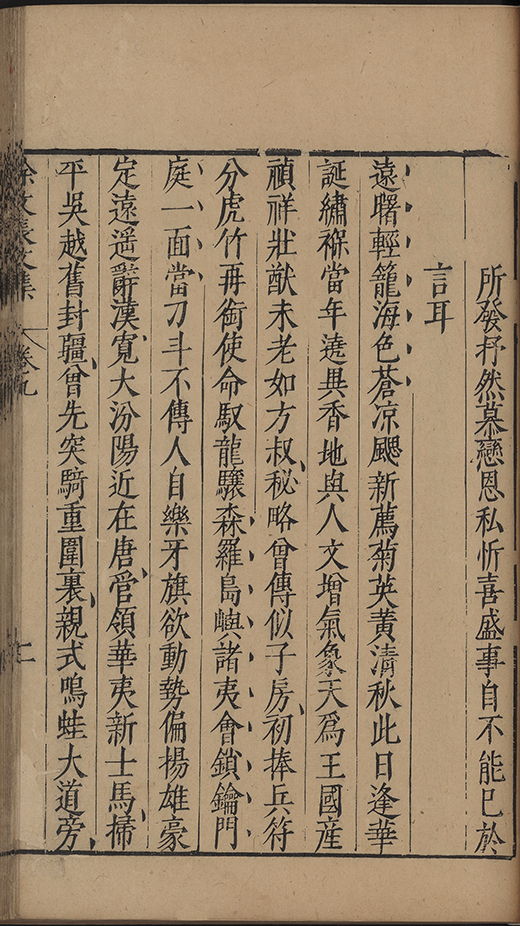 所發抒然慕戀恩私忻喜盛事自不能已於
言耳
遠曙輕籠海色蒼凉颸新薦菊英黃清秋此日逢華
誕繡褓當年遶異香地與人文增氣象天爲王國産
禎祥壯猷未老如方叔秘略曾傳似子房初捧兵符
分虎竹再銜使命馭龍驤森羅島嶼諸夷會鎖鑰門
庭一面當刀斗不傳人自樂牙旗欲動勢偏揚雄豪
定遠遥辭漢寬大汾陽近在唐官領華夷新士馬掃
平吳越舊封疆曾先突騎重圍裏親式鳴蛙大道旁
徐文長文集 卷九 二